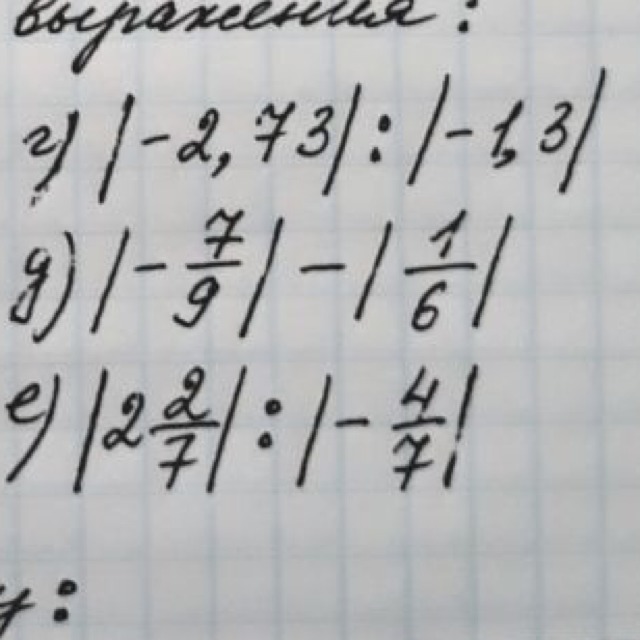 выражения:
г) |-2,73| : |-1,3|
д) |-7/9| - |1/6|
е) |2 2/7| : |-4/7|
у: